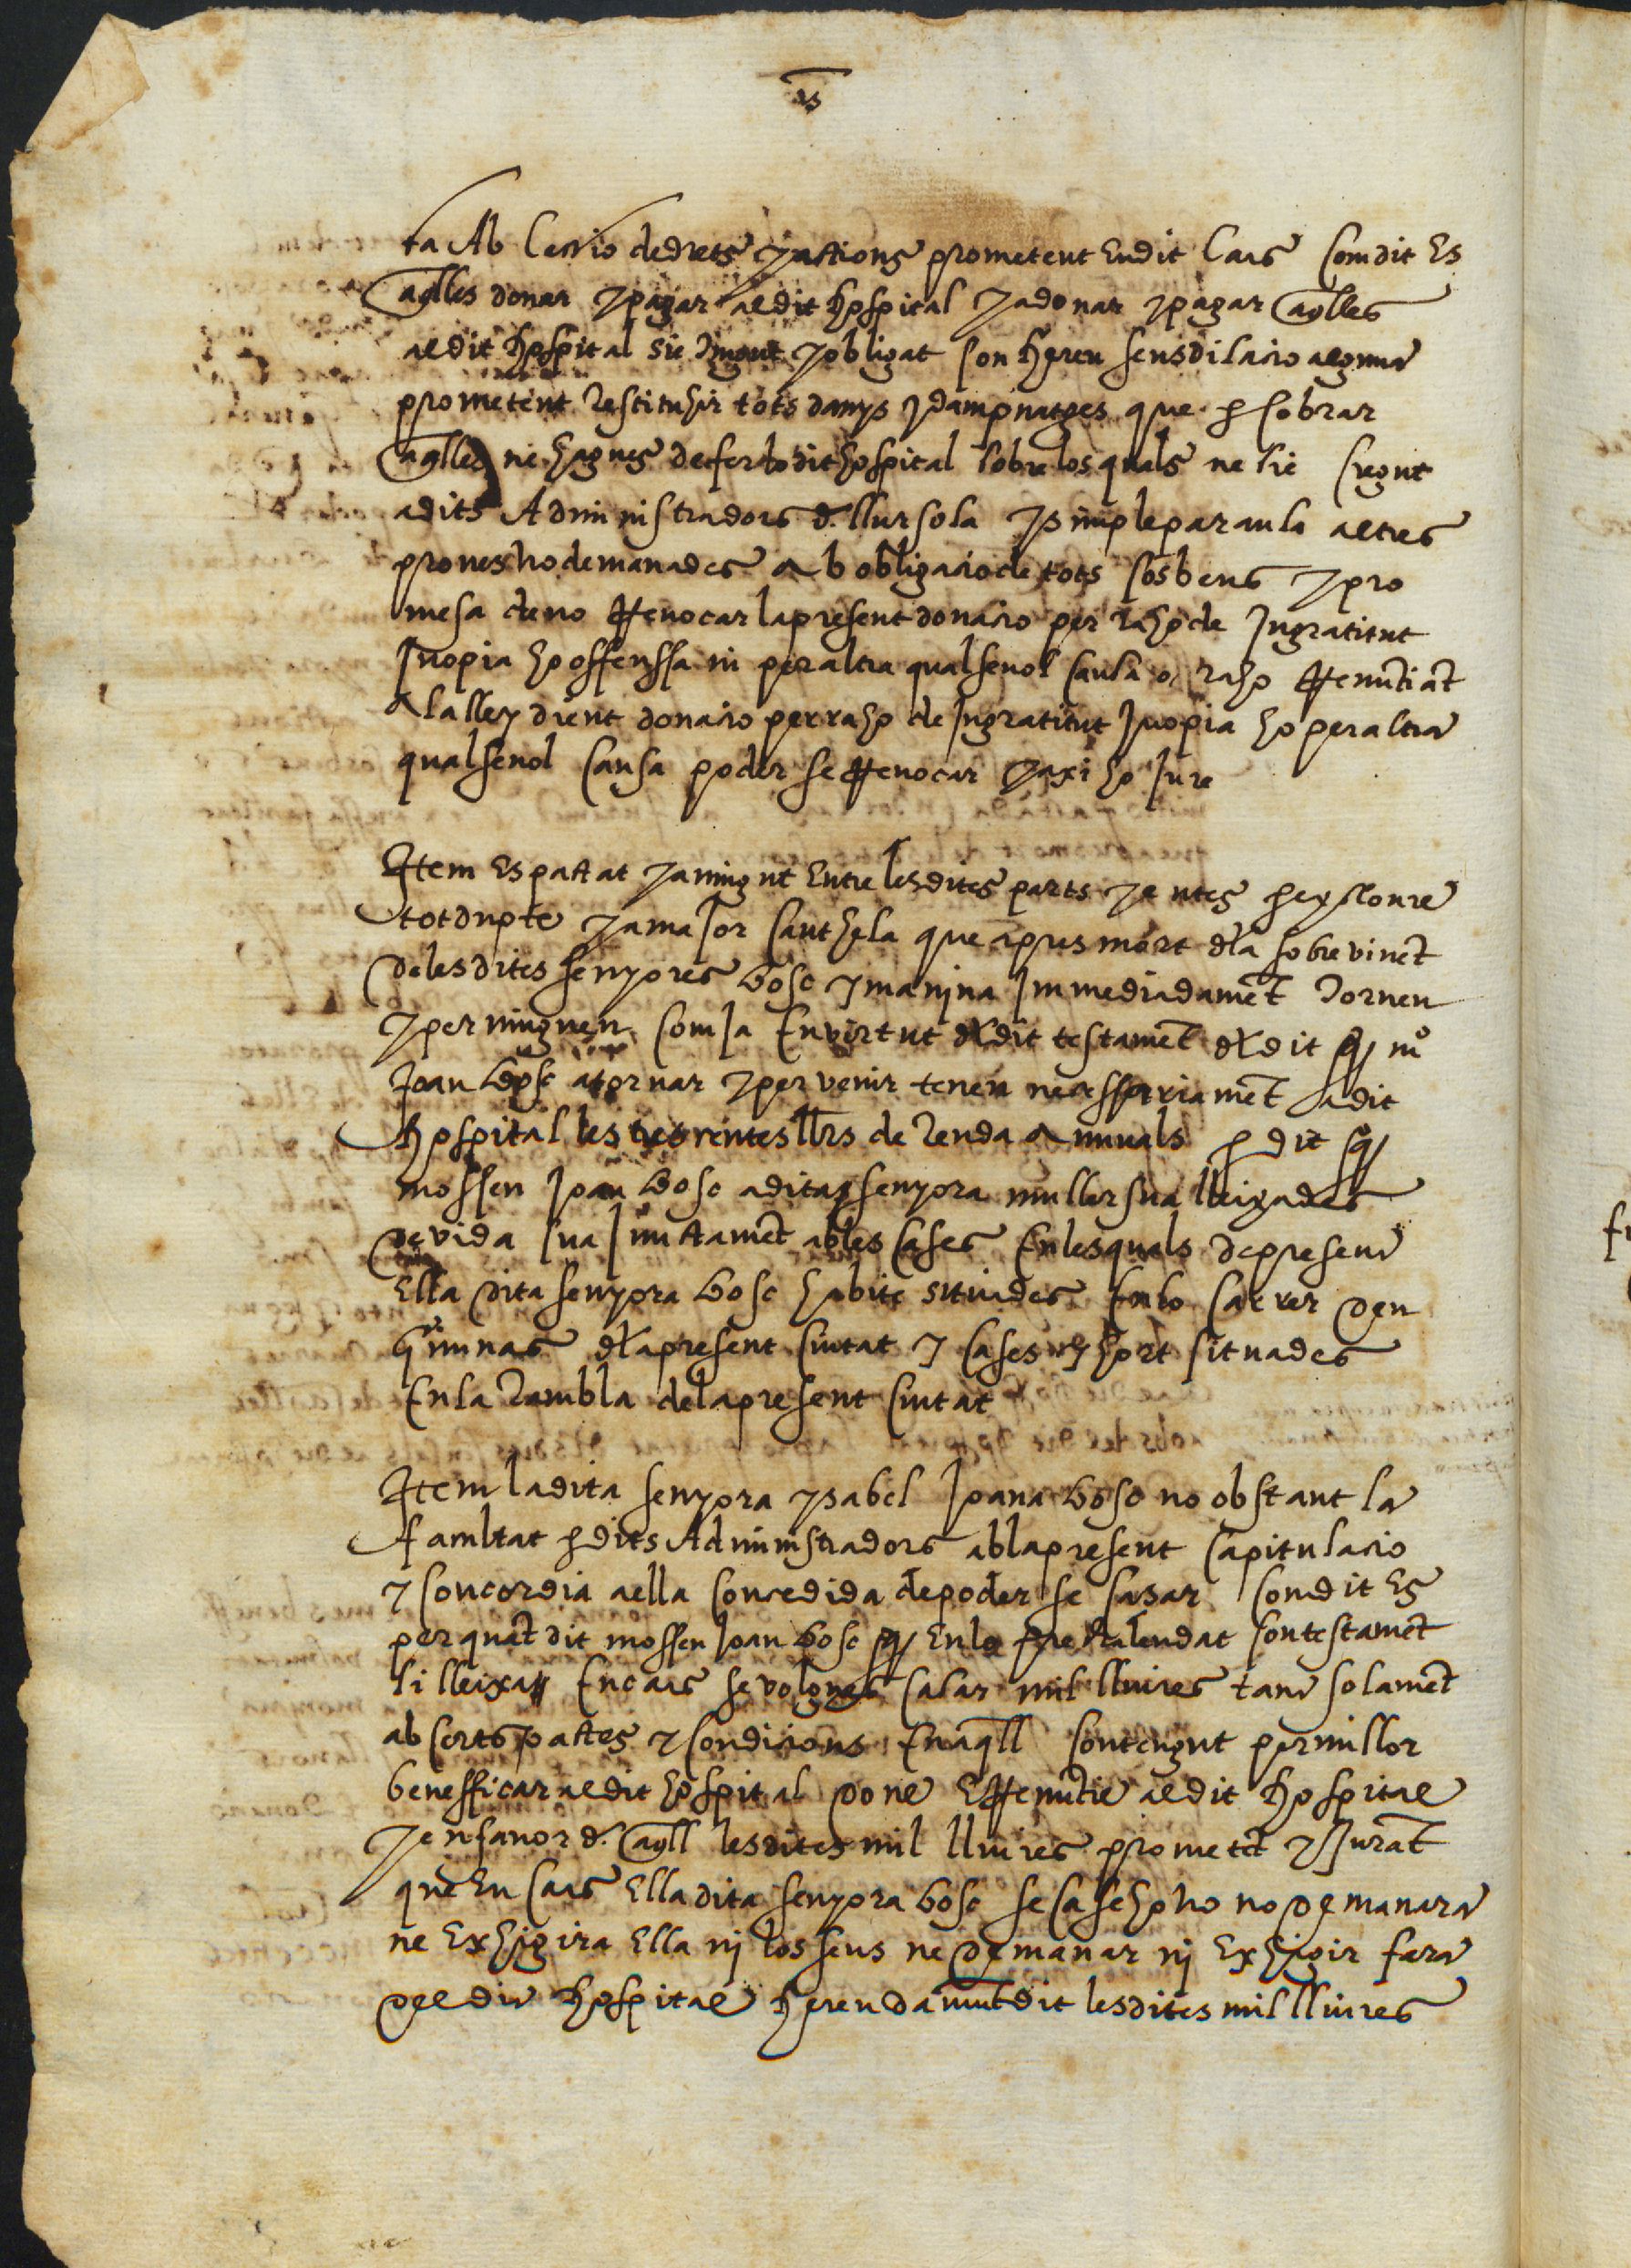 ta Ab Cessio de drets y actions prometent en dit cars com dit es
aqlles donar y pagar al dit hospital y a donar y pagar aqlles
al dit hospital sie tingut y obligat son hereu sens dilacio alguna
prometent restituhir tots danys y dampnatges que p cobrar
aqlles ne hagues de fer lo dit hospital sobre los quals ne sie cregut
a dits Administradors d. llur sola y simple paraula altres
proves no demanades ab obligacio de tots sos bens y pro
mesa de no Revocar la present donacio per raho de Ingratitut
Inopia ho offenssa ni per altra qualsevol causa o raho Renuntiāt
A la lley dient donacio per raho de Ingratitut Inopia ho per altra
qualsevol causa poder se Revocar y axi ho Jure
Item es pactat y avingut entre les dites parts y entes p excloure
tot dupte y a maJor cauthela que apres mort dla sobrevinēt
de les dites senyores bosc y manjna Immediadamēt tornen
y pervinguen com Ja en virtut dl dit testamēt dl dit q mº
Joan bosc a tornar y pervenir tenen necessariamēt a dit
hospital les trecentes llrs de renda Annuals p dit q
mossen Joan bosc a dita senyora muller sua lleixades
de vida sua Junctamēt ab les cases en les quals de present
Ella dita senyora bosc habite situades en lo carrer den
Gimnas dla present ciutat y cases y hort situades
en la rambla de la present ciutat
Item la dita senyora ysabel Joana bosc no obstant la
facultat p dits Administradors ab la present capitulacio
y concordia a ella concedida de poder se casar com dit es
per quāt dit mossen Joan bosc q en lo precalendat son testamēt
li lleixa en cars se volgues casar mil lliures tant solamēt
ab certs pactes y condicions en aqll contengut per millor
benefficar al dit hospital done E Renūtie al dit hospital
y en favor d. aqll les dites mil lliures prometēt y Jurāt
que en cars Ella dita senyora bosc se case ho no no demanara
ne exhigira Ella nj los seus ne demanar nj exhigir fara
del dit hospital hereu damūt dit les dites mil lliures